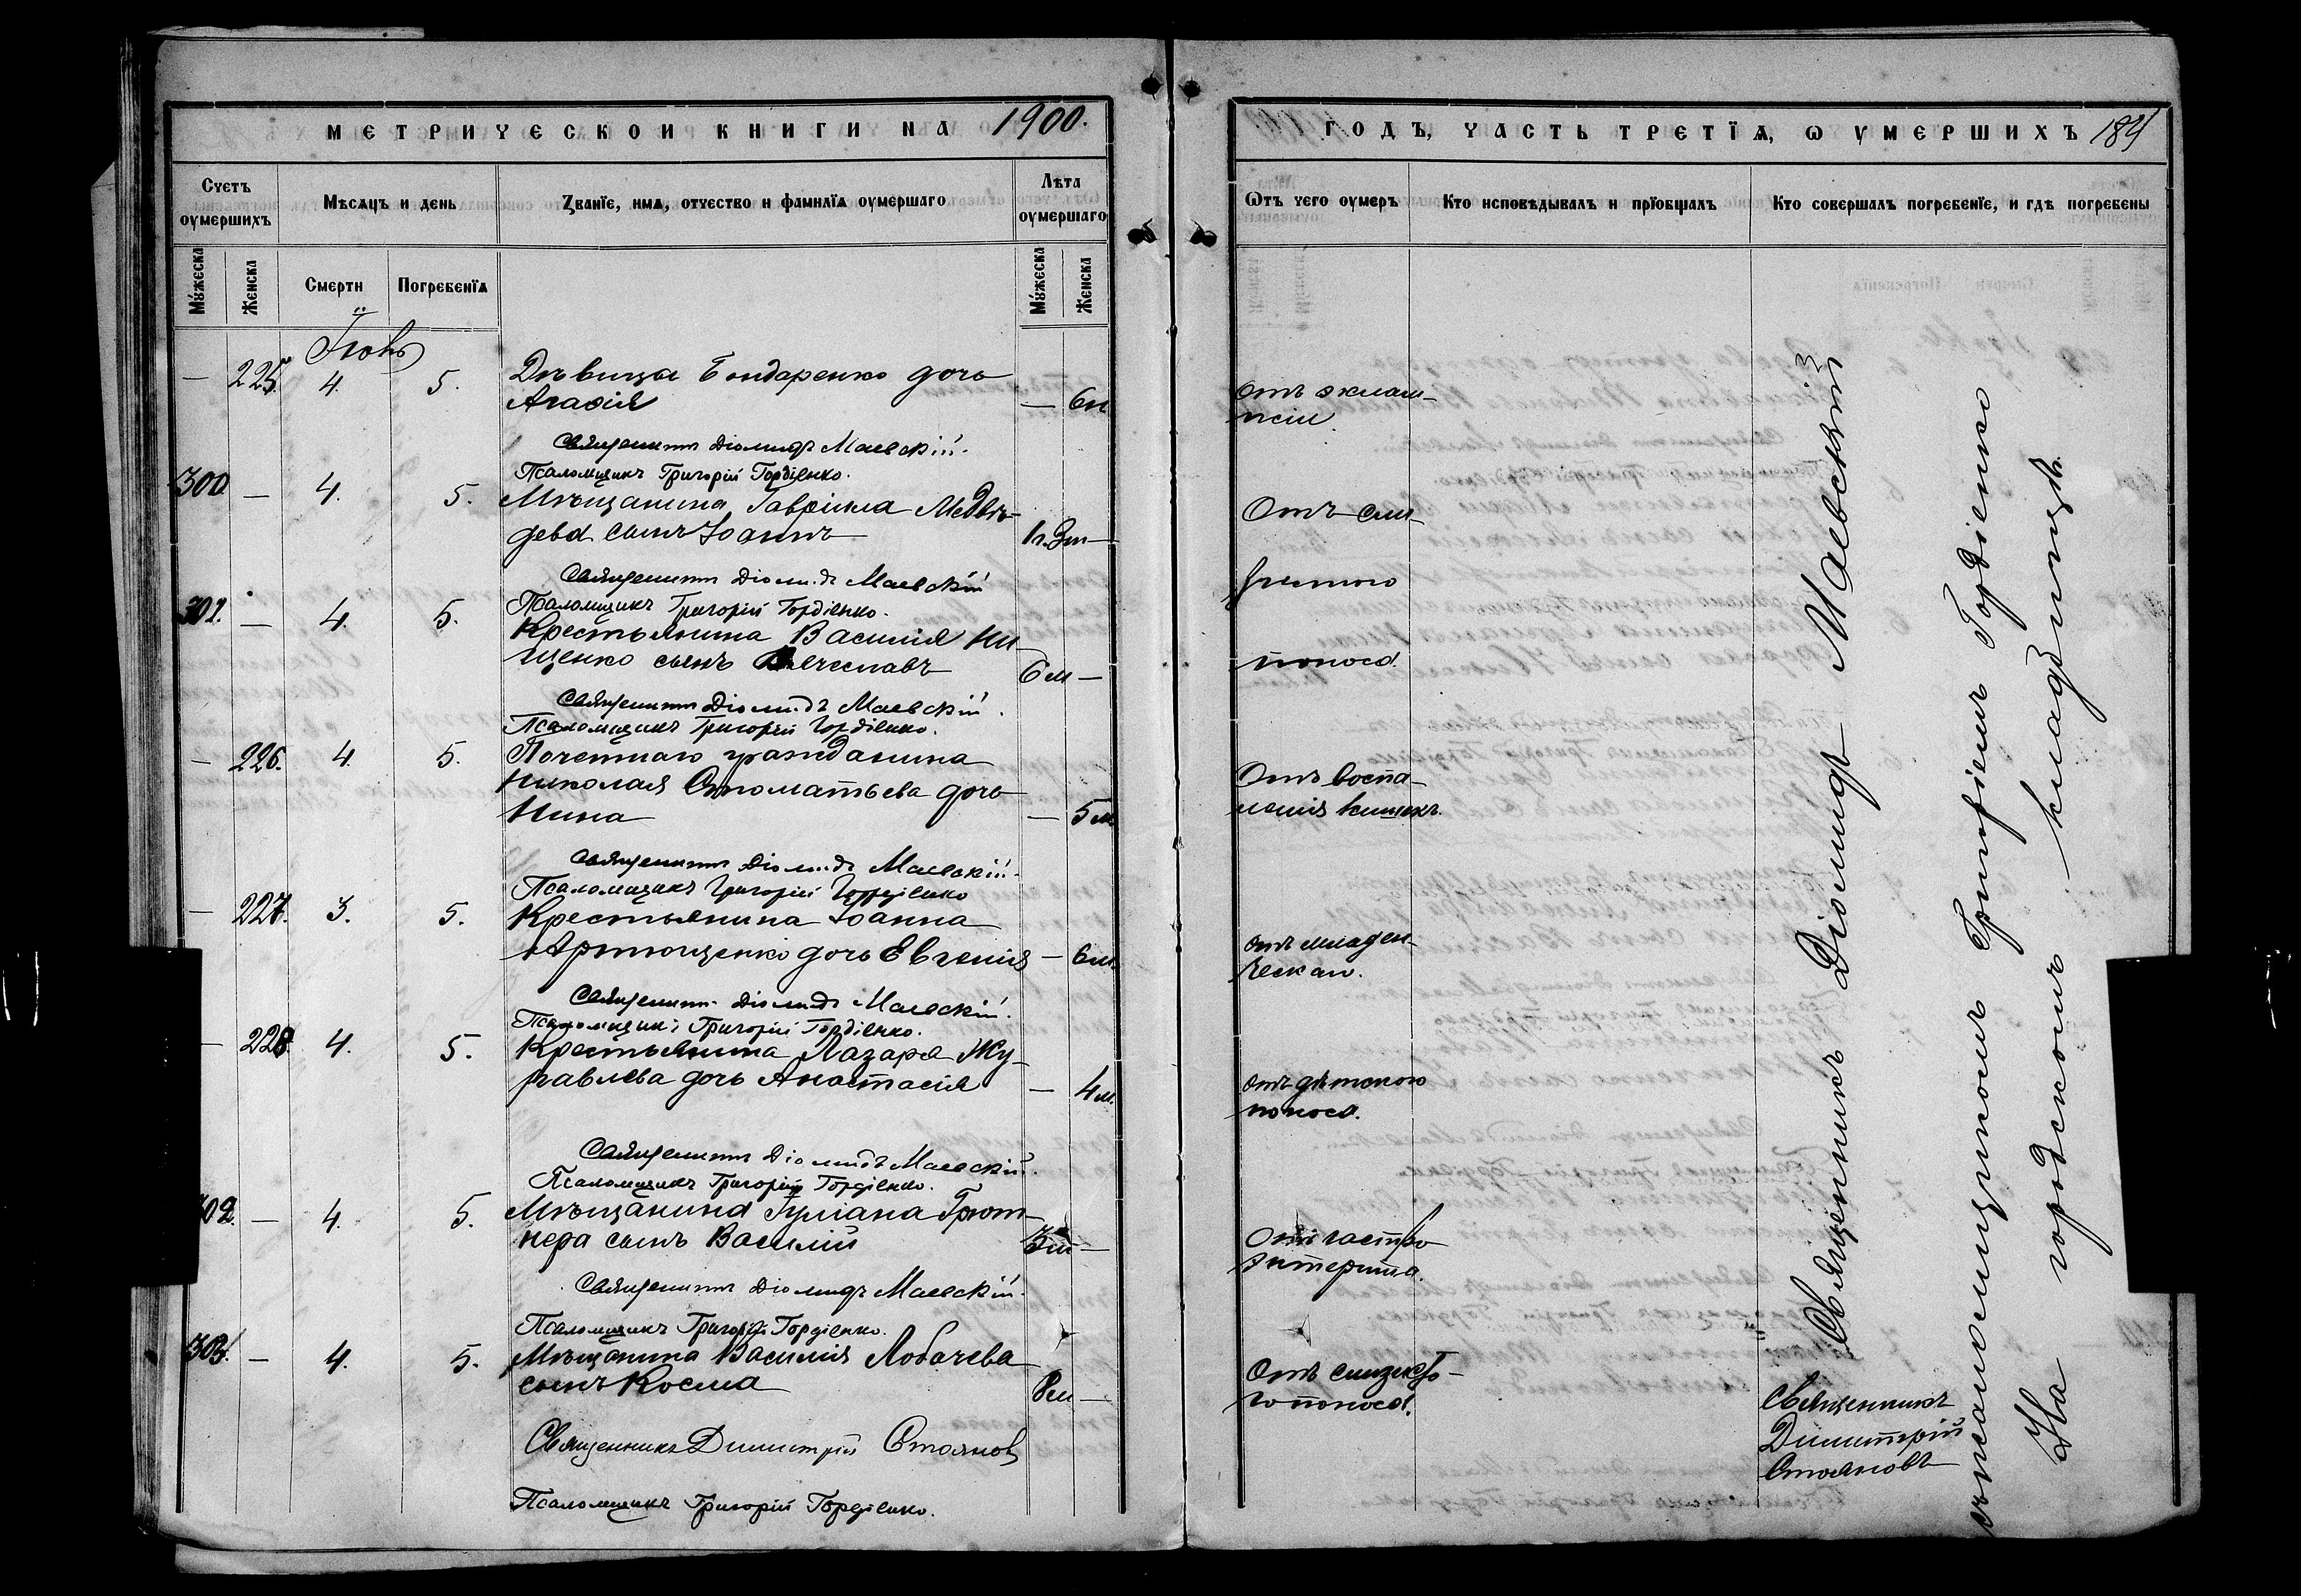 МЕТРИЧЕСКОЙ КНИГИ НА 1900.
Счетъ оумершихъ
Мѣсяцъ и день
Званїе, имя, отчество и фамилїя оумершаго
Лѣта оумершаго
Мужеска
Женска
Смерти
Погребенїя
Мужеска
Женска
Іюнь
— 225. 4. 5. Дѣвицы Бондаренко дочь
Агафія — 6н
Священникъ Діомидъ Маевскій.
Псаломщикъ Григорій Гордіенко.
300 — 4. 5. Мѣщанина Гавріила Медвѣ-
дева сынъ Іоаннъ 1г.3м —
Священникъ Діомидъ Маевскій
Псаломщикъ Григорій Гордіенко.
301. — 4. 5. Крестьянина Василія Ни-
щенко сынъ Вячеславъ 6м —
Священникъ Діомидъ Маевскій.
Псаломщикъ Григорій Гордіенко.
— 226. 4. 5. Почетнаго гражданина
Николая Стоматьева дочь
Нина — 5м
Священникъ Діомидъ Маевскій.
Псаломщикъ Григорій Гордіенко
— 227. 3. 5. Крестьянина Іоанна
Артющенко дочь Евгенія — 6м.
Священникъ Діомидъ Маевскій.
Псаломщикъ Григорій Гордіенко.
— 228. 4. 5. Крестьянина Лазаря Жу-
равлева дочь Анастасія — 4м.
Священникъ Діомидъ Маевскій.
Псаломщикъ Григорій Гордіенко.
302. — 4. 5. Мѣщанина
нера сынъ Василій 3м —
Священникъ Діомидъ Маевскій.
Псаломщикъ Григорій Гордіенко.
303. — 4. 5. Мѣщанина Василія Лобачева
сынъ Косма 8м —
Священникъ Димитрій Стояновъ
Псаломщикъ Григорій Гордіенко.
ГОДЪ, ЧАСТЬ ТРЕТЇЯ, Ѡ УМЕРШИХЪ
Ѿтъ чего оумеръ
Кто исповѣдывалъ и прїобщалъ
Кто совершалъ погребенїе, и гдѣ погребены
Отъ эклам-
псіи.
Отъ сли-
зистого
поноса.
Отъ воспа-
ленія кишекъ.
отъ младен-
ческаго.
отъ дѣтского
поноса.
Отъ гастро
энтерита.
Отъ слизисто-
го поноса.
Священникъ Діомидъ Маевскій
съ псаломщикомъ Григоріемъ Гордіенко
На городскомъ кладбищѣ.
Священникъ
Димитрій
Стояновъ